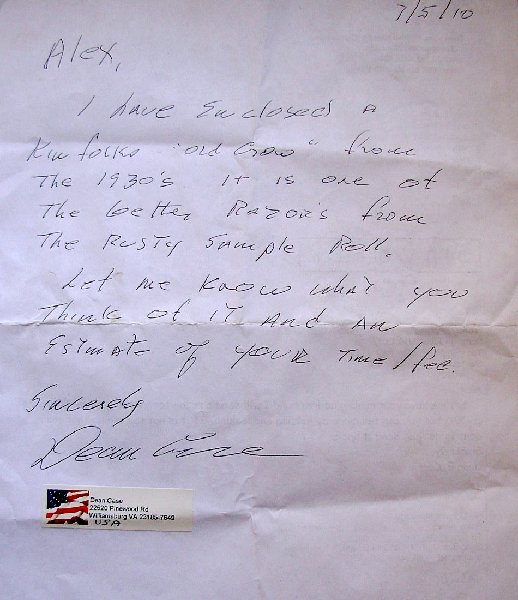 7/5/10
Alex,
I have Enclosed A
Kinfolks "Old Crow" from
The 1930's. It is one of
The better Razor's from
The Rusty Sample Roll.
Let me Know what you
Think of IT And An
Estimate of your Time/fee.
Sincerely
Dean Case
Dean Case
Pinewood Rd
Williamsburg VA
USA